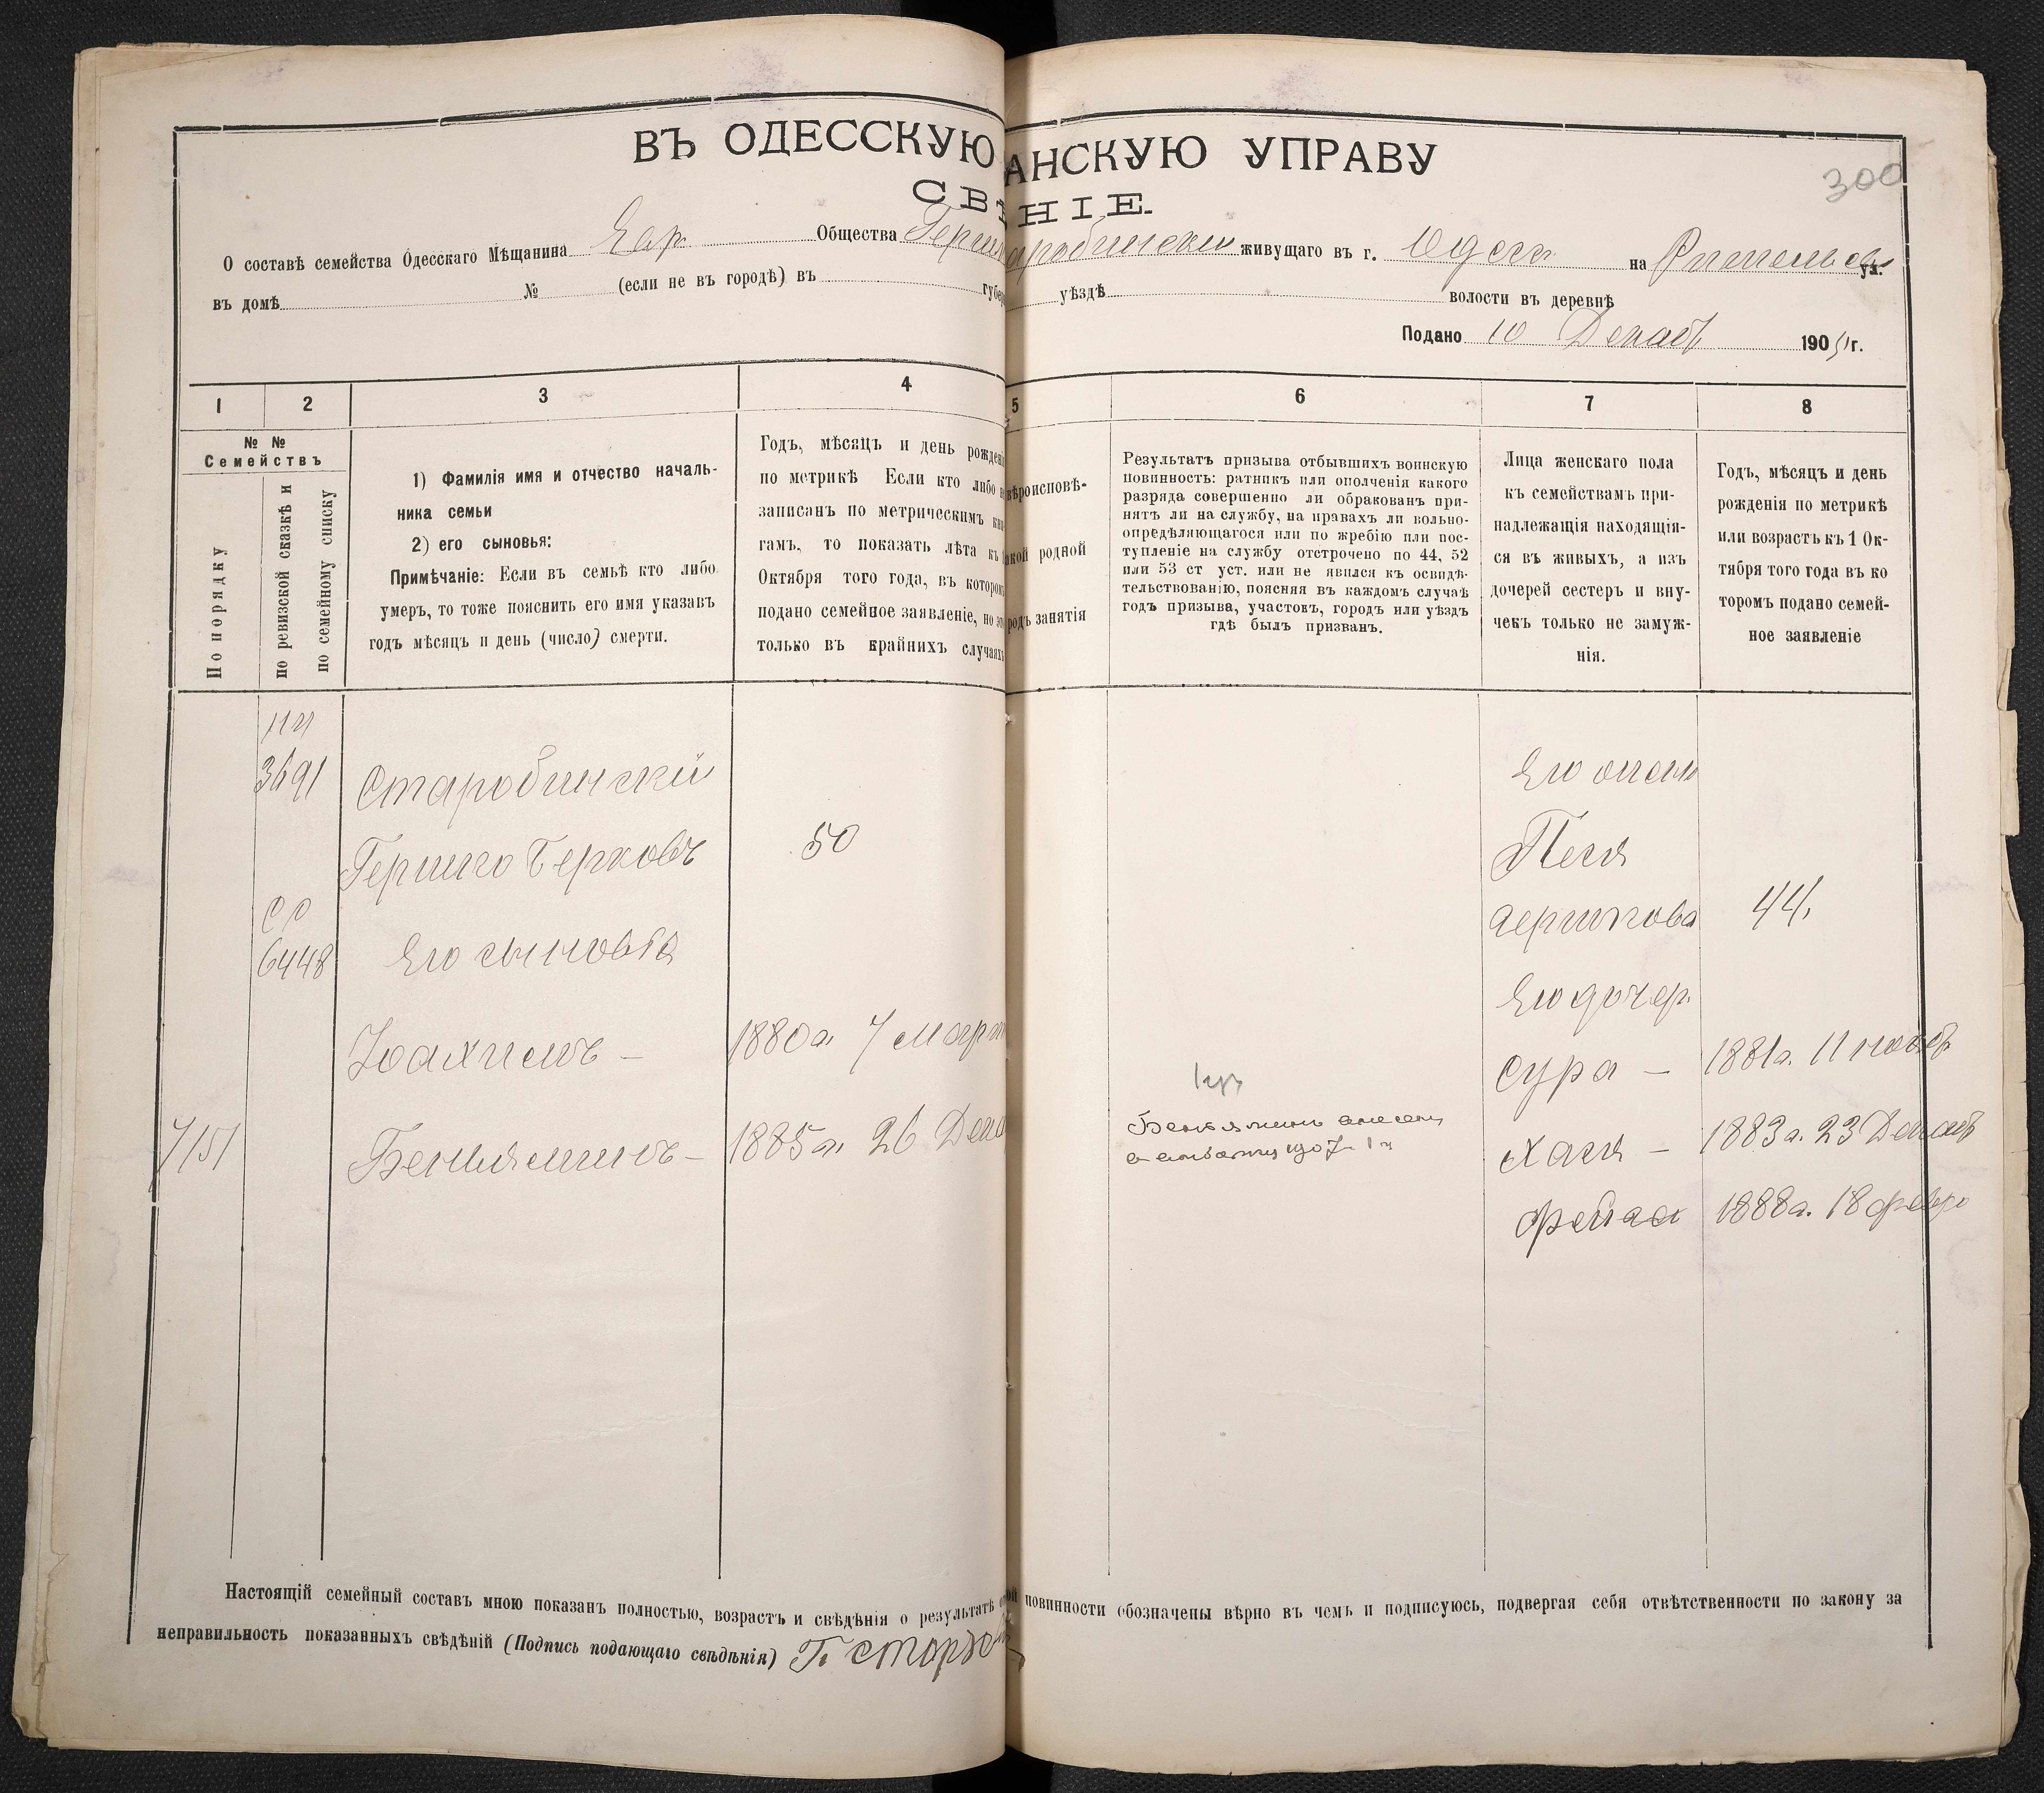 300
ВЪ ОДЕССКУЮ АНСКУЮ УПРАВУ
СВѢ НІЕ.
О составѣ семейства Одесскаго Мѣщанина Евр. Общества Герш аробински живущаго въ г. Одесс на Ришельев ул.
въ домѣ № (если не въ городѣ) въ губер уѣздѣ волости въ деревнѣ
Подано 10 Декаб 190 г.
1 2 3 4 5 6 7 8
№ №
Семействъ
По порядку
по ревизской сказкѣ и
по семейному списку
1) Фамилія имя и отчество началь-
ника семьи
2) его сыновья:
Примѣчаніе: Если въ семьѣ кто либо
умеръ, то тоже пояснить его имя указавъ
годъ мѣсяцъ и день (число) смерти.
Годъ, мѣсяцъ и день рожден
по метрикѣ Если кто либо н
записанъ по метрическимъ кни
гамъ, то показать лѣта къ 1
Октября того года, въ которо
подано семейное заявленіе, но эт
только въ крайнихъ случаяхъ
вѣроисповѣ-
акой родной
родъ занятія
Результатъ призыва отбывшихъ воинскую
повинность: ратникъ или ополченія какого
разряда совершенно ли обракованъ при-
нятъ ли на службу, на правахъ ли вольно-
опредѣляющагося или по жребію или пос-
тупленіе на службу отстрочено по 44, 52
или 53 ст уст. или не явился къ освидѣ-
тельствованію, поясняя въ каждомъ случаѣ
годъ призыва, участокъ, городъ или уѣздъ
гдѣ былъ призванъ.
Лица женскаго пола
къ семействамъ при-
надлежащія находящія-
ся въ живыхъ, а изъ
дочерей сестеръ и вну-
чекъ только не замуж-
нія.
Годъ, мѣсяцъ и день
рожденія по метрикѣ
или возрастъ къ 1 Ок-
тября того года въ ко
торомъ подано семей-
ное заявленіе
3691 Старобинскій
Гершко Берковъ 50
6448 Его сыновья
Іоахимъ – 1880 г. 7 мар
7151 Беньяминъ – 1885 г. 26 Дека
Беньяминъ внесенъ
1907 г
Его жена
Песя
Гершкова 44
Его дочер.
Сура – 1881 г. 11 нояб
Хая – 1883 г. 23 Декаб
Фейга 1888 г. 18 февр
Настоящій семейный составъ мною показанъ полностью, возрастъ и свѣдѣнія о результатѣ ой повинности обозначены вѣрно въ чемъ и подписуюсь, подвергая себя отвѣтственности по закону за
неправильность показанныхъ свѣдѣній (Подпись подающаго свѣдѣнія) Г. Старо